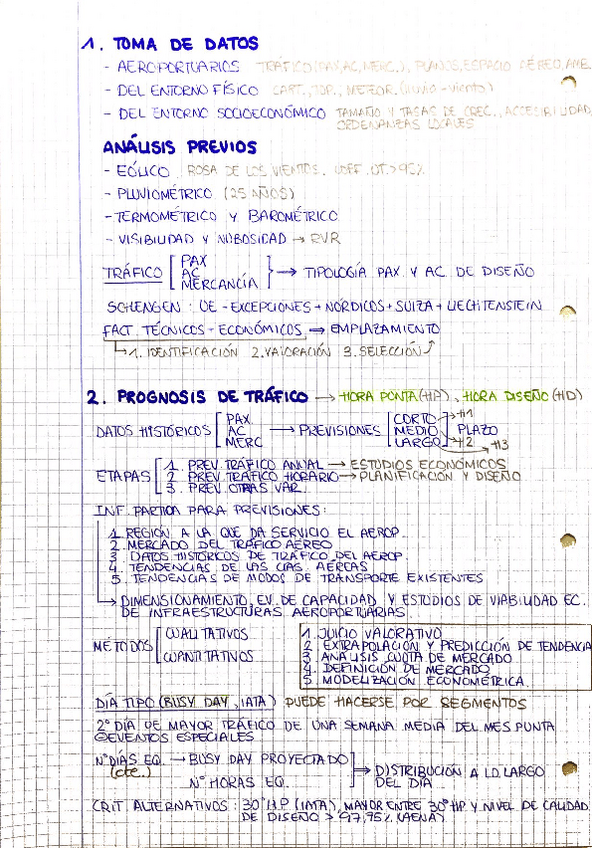 1. TOMA DE DATOS
- AEROPORTUARIOS TRÁFICO (PAX, AC, MERC.), PLANOS, ESPACIO AÉREO, AMB.
- DEL ENTORNO FÍSICO CART., TOP., METEOR. (lluvia-viento)
- DEL ENTORNO SOCIOECONÓMICO TAMAÑO Y TASAS DE CREC., ACCESIBILIDAD,
ORDENANZAS LOCALES
ANÁLISIS PREVIOS
- EÓLICO ROSA DE LOS VIENTOS. COEF. UT. > 95%
- PLUVIOMÉTRICO (25 AÑOS)
- TERMOMÉTRICO Y BAROMÉTRICO
- VISIBILIDAD Y NUBOSIDAD → RVR
TRÁFICO [ PAX
AC
MERCANCÍA } → TIPOLOGÍA PAX Y AC DE DISEÑO
SCHENGEN: UE - EXCEPCIONES + NÓRDICOS + SUIZA + LIECHTENSTEIN
FACT. TÉCNICOS - ECONÓMICOS ⇒ EMPLAZAMIENTO
↳ 1. IDENTIFICACIÓN 2. VALORACIÓN 3. SELECCIÓN
2. PROGNOSIS DE TRÁFICO → HORA PUNTA (HP), HORA DISEÑO (HD)
DATOS HISTÓRICOS [ PAX
AC
MERC → PREVISIONES [ CORTO → H1
MEDIO
LARGO → H2 PLAZO
H3
ETAPAS [ 1. PREV. TRÁFICO ANUAL → ESTUDIOS ECONÓMICOS
2. PREV. TRÁFICO HORARIO → PLANIFICACIÓN Y DISEÑO
3. PREV. OTRAS VAR.
INF. PARTIDA PARA PREVISIONES:
1. REGIÓN A LA QUE DA SERVICIO EL AEROP.
2. MERCADO DEL TRÁFICO AÉREO
3. DATOS HISTÓRICOS DE TRÁFICO DEL AEROP.
4. TENDENCIAS DE LAS CÍAS. AÉREAS
5. TENDENCIAS DE MODOS DE TRANSPORTE EXISTENTES
→ DIMENSIONAMIENTO, EV. DE CAPACIDAD Y ESTUDIOS DE VIABILIDAD EC.
DE INFRAESTRUCTURAS AEROPORTUARIAS
MÉTODOS [ CUALITATIVOS
CUANTITATIVOS
1. JUICIO VALORATIVO
2. EXTRAPOLACIÓN Y PREDICCIÓN DE TENDENCIA
3. ANÁLISIS CUOTA DE MERCADO
4. DEFINICIÓN DE MERCADO
5. MODELIZACIÓN ECONOMÉTRICA
DÍA TIPO (BUSY DAY, IATA) PUEDE HACERSE POR SEGMENTOS
2º DÍA DE MAYOR TRÁFICO DE UNA SEMANA MEDIA DEL MES PUNTA
EVENTOS ESPECIALES
Nº DÍAS EQ. → BUSY DAY PROYECTADO
(cte.)
Nº HORAS EQ.
→ DISTRIBUCIÓN A LO LARGO
DEL DÍA
CRIT. ALTERNATIVOS: 30ª H.P. (IATA), MAYOR ENTRE 30ª HP Y NIVEL DE CALIDAD
DE DISEÑO > 97,75% (AENA)